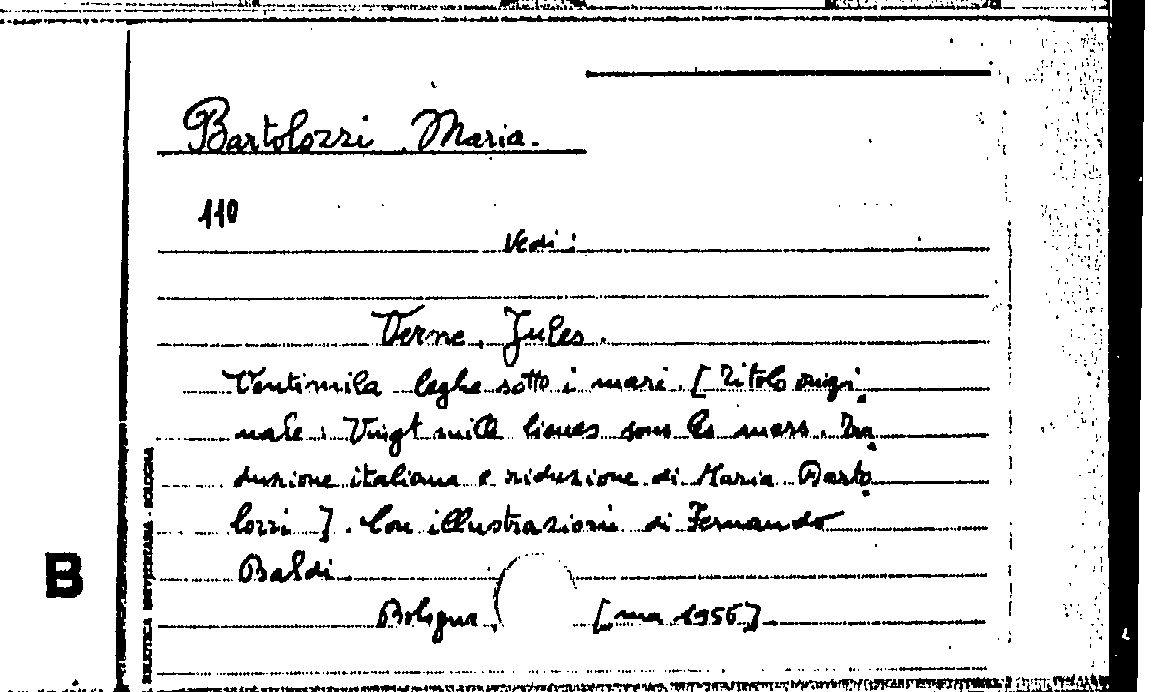 Bartolozzi Maria.
110
Vedi:
Verne, Jules.
Ventimila leghe sotto i mari. [Titolo origi-
nale: Vingt mille lieues sous les mers. Tra-
duzione italiana e riduzione di Maria Barto-
lozzi]. Con illustrazioni di Fernando
Baldi
Bologna, [ma 1956]
B
BIBLIOTECA UNIVERSITARIA - BOLOGNA